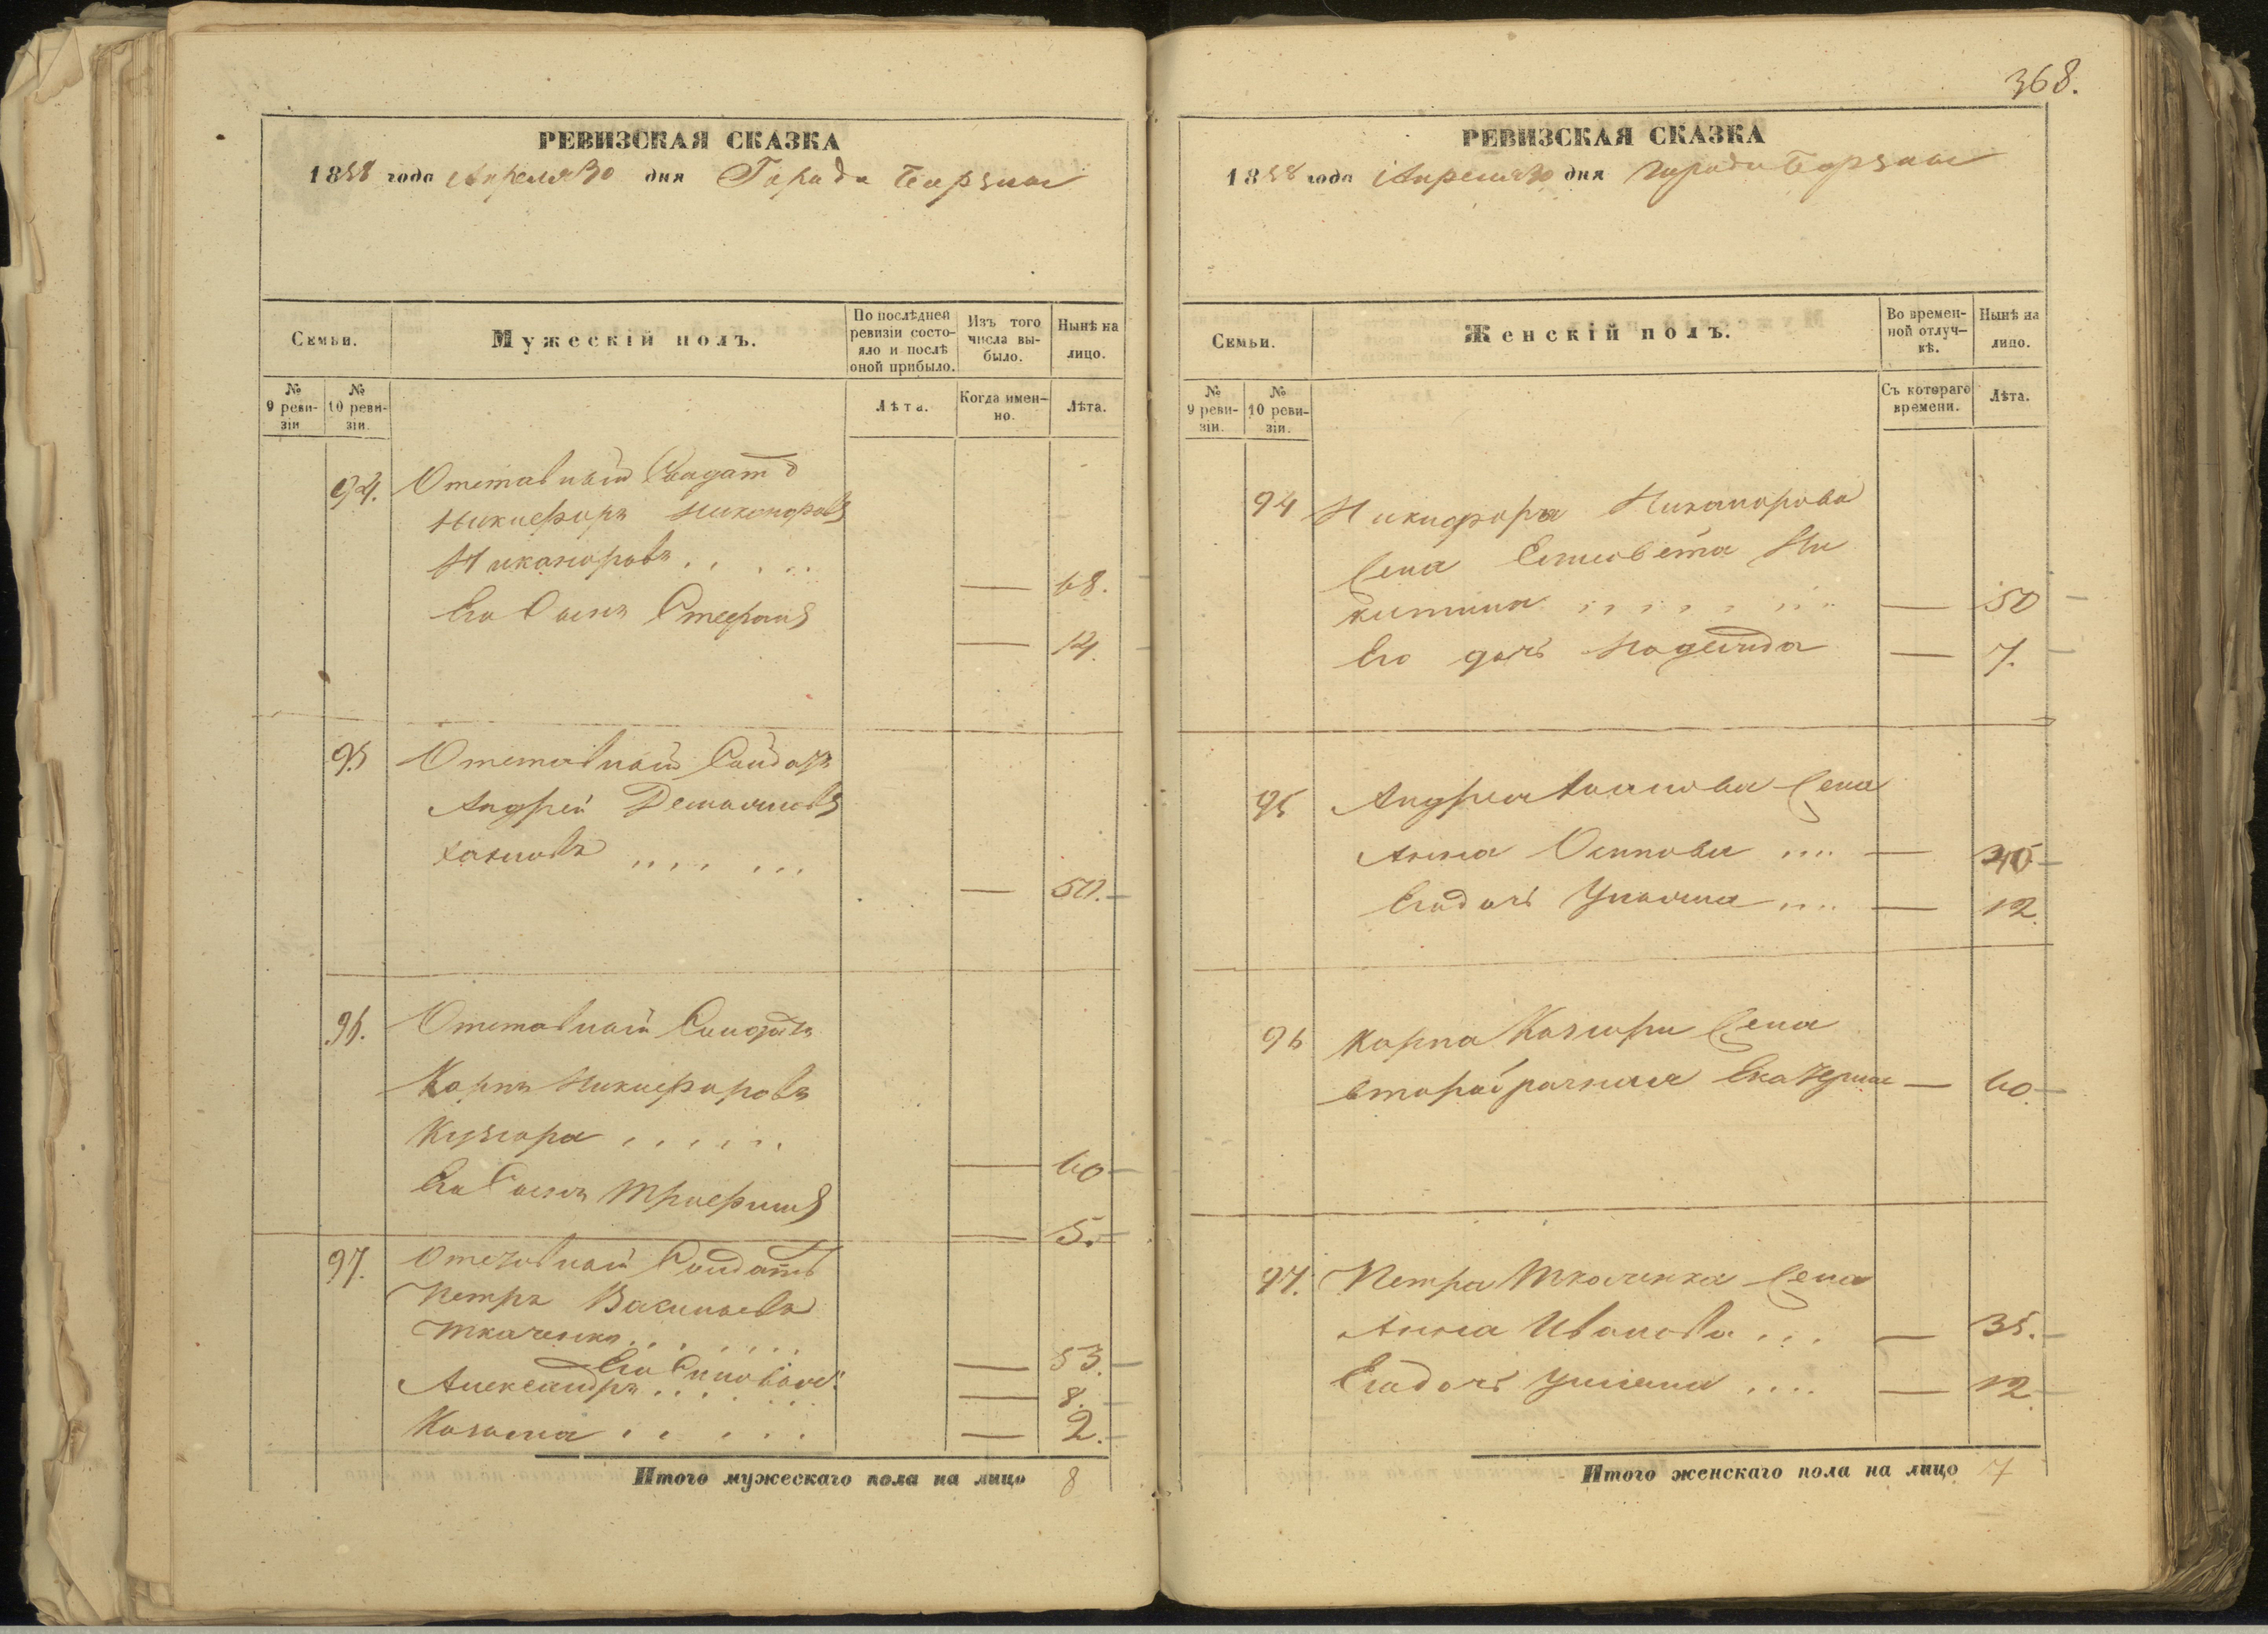 РЕВИЗСКАЯ СКАЗКА
1858 года Апреля 30 дня Города Борзны
Семьи.
Мужескій полъ.
По послѣдней ревизіи состояло и послѣ оной прибыло.
Изъ того числа выбыло.
Нынѣ на лицо.
№ 9 ревизіи
№ 10 ревизіи.
Лѣта.
Когда именно.
Лѣта.
94. Отставный Солдатъ
Никифоръ Никоноровъ
Никаноровъ . . . . . — 68.
Его Сынъ Стефанъ — 14.
95 Отставный Солдатъ
Андрей
. . . . . . . — 50. —
96. Отставный Солдатъ
Карпъ Никифоровъ
. . . . . . — 60 —
Его Сынъ Трифинъ — 5. —
97. Отставный Солдатъ
Петръ Васильевъ
Ткаченко . . . . . . — 53. —
Его Сыновья:
Александръ . . . . . . — 8. —
Козьма . . . . . — 2. —
Итого мужескаго пола на лицо 8
368.
РЕВИЗСКАЯ СКАЗКА
1858 года Апреля 30 дня города Борзны
Семьи.
Женскій полъ.
Во временной отлучкѣ.
Нынѣ на лицо.
№ 9 ревизіи.
№ 10 ревизіи.
Съ котораго времени.
Лѣта.
94 Никифора Никанорова
Жена Елисовета Ни
китина . . . . . . . . — 50 —
Его дочь Надежда — 7. —
95 Андрея Жена
Анна Осипова . . . . — 40 —
Его дочь Ульяна . . . . — 12.
96 Карпа Жена
Екатерина — 60. —
97. Петра Ткаченка Жена
Анна Иванова . . . — 35. —
Его дочь Ульяна . . . . — 12. —
Итого женскаго пола на лицо 7